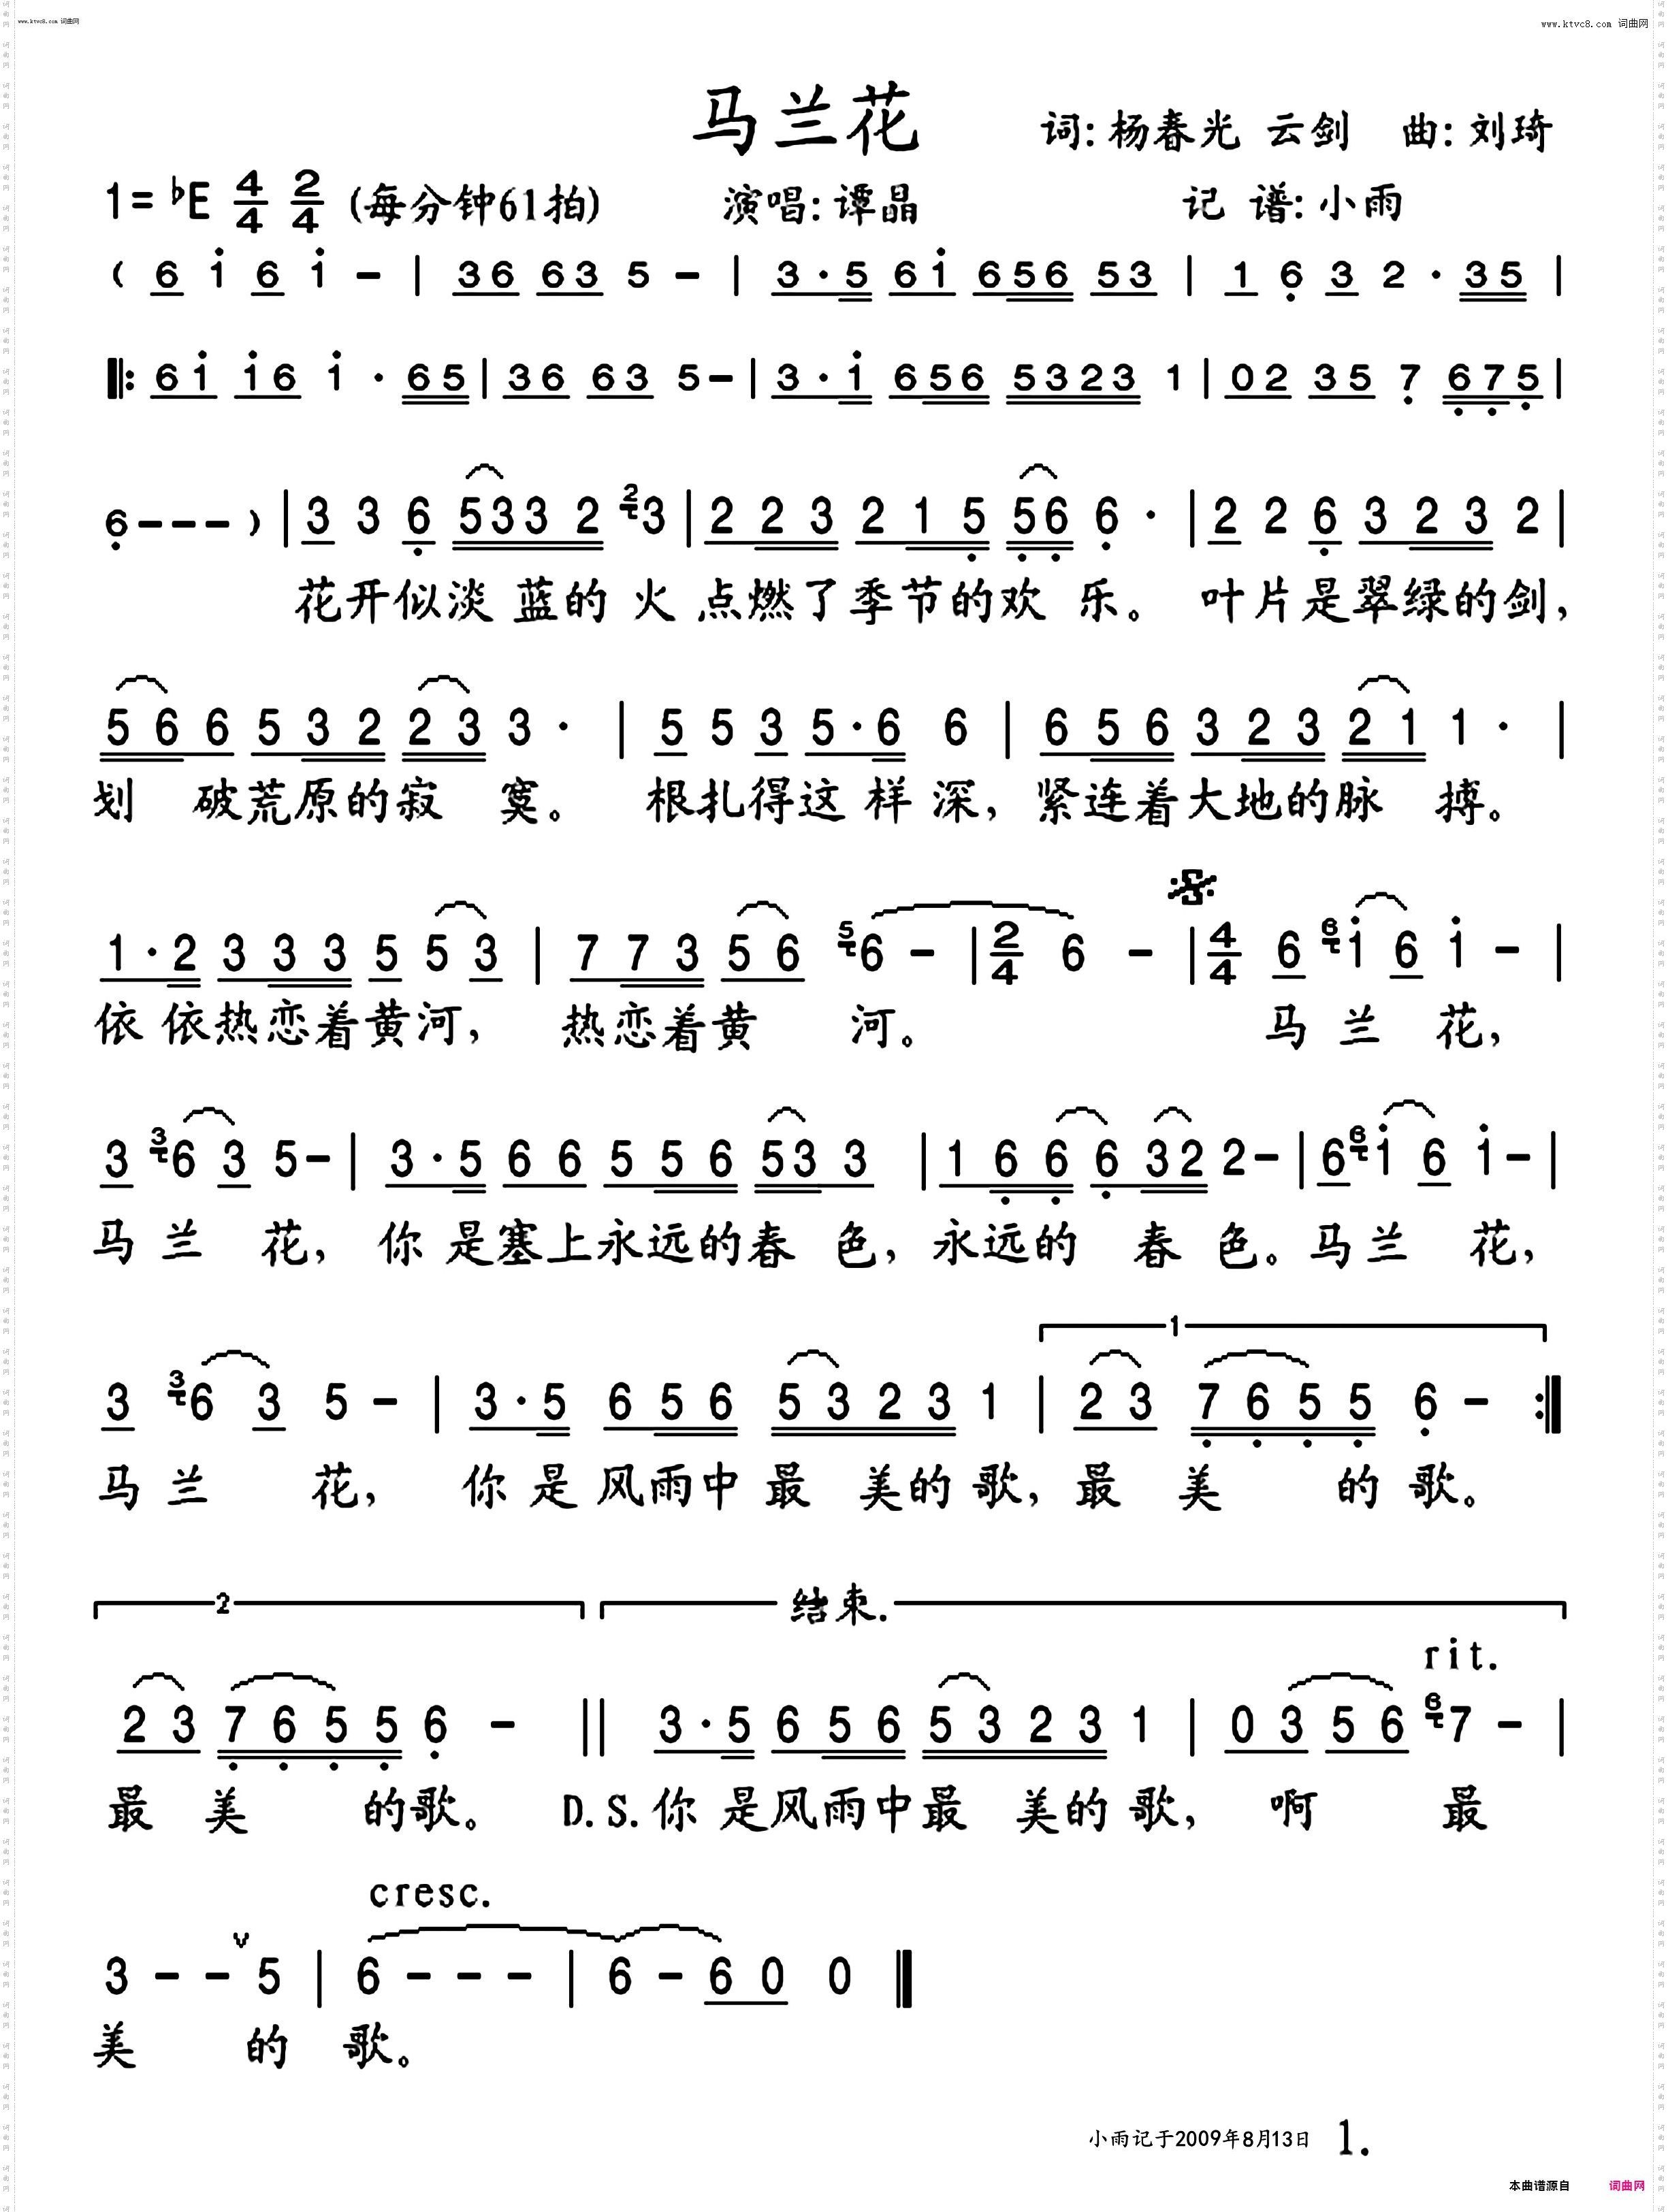 www.ktvc8.com 词曲网
www.ktvc8.com 词曲网
马兰花
词: 杨春光 云剑 曲: 刘琦
1= ♭E 4/4 2/4 (每分钟61拍) 演唱: 谭晶 记 谱: 小雨
( 6 i 6 i - | 36 63 5 - | 3 · 5 6i 656 53 | 1 6 3 2 · 35 |
‖: 6i i6 i · 65 | 36 63 5 - | 3 · i 656 5323 1 | 02 35 7 675 |
6 - - - ) | 3 3 6 533 2 2 3 | 2 2 3 2 1 5 56 6 · | 2 2 6 3 2 3 2 |
花开似淡 蓝的 火 点燃了季节的欢 乐。 叶片是翠绿的剑,
5 6 6 5 3 2 2 3 3 · | 5 5 3 5 · 6 6 | 6 5 6 3 2 3 2 1 1 · |
划 破荒原的寂 寞。 根扎得这 样 深, 紧连着大地的脉 搏。
1 · 2 3 3 3 5 5 3 | 7 7 3 5 6 5 6 - | 2/4 6 - | 4/4 6 6 i 6 i - |
依 依热恋着黄河, 热恋着黄 河。 马 兰 花,
3 3 6 3 5 - | 3 · 5 6 6 5 5 6 53 3 | 1 6 6 6 32 2 - | 6 6 i 6 i - |
马 兰 花, 你 是塞上永远的春 色, 永远的 春 色。马兰 花,
1
3 3 6 3 5 - | 3 · 5 6 5 6 5 3 2 3 1 | 2 3 7 6 5 5 6 - :‖
马 兰 花, 你 是 风雨中 最 美的 歌, 最 美 的 歌。
2 结束.
rit.
2 3 7 6 5 5 6 - ‖ 3 · 5 6 5 6 5 3 2 3 1 | 0 3 5 6 6 7 - |
最 美 的歌。 D.S.你 是风雨中最 美的 歌, 啊 最
cresc.
3 - - ∨ 5 | 6 - - - | 6 - 6 0 0 ‖
美 的 歌。
小雨记于2009年8月13日 1.
本曲谱源自 词曲网